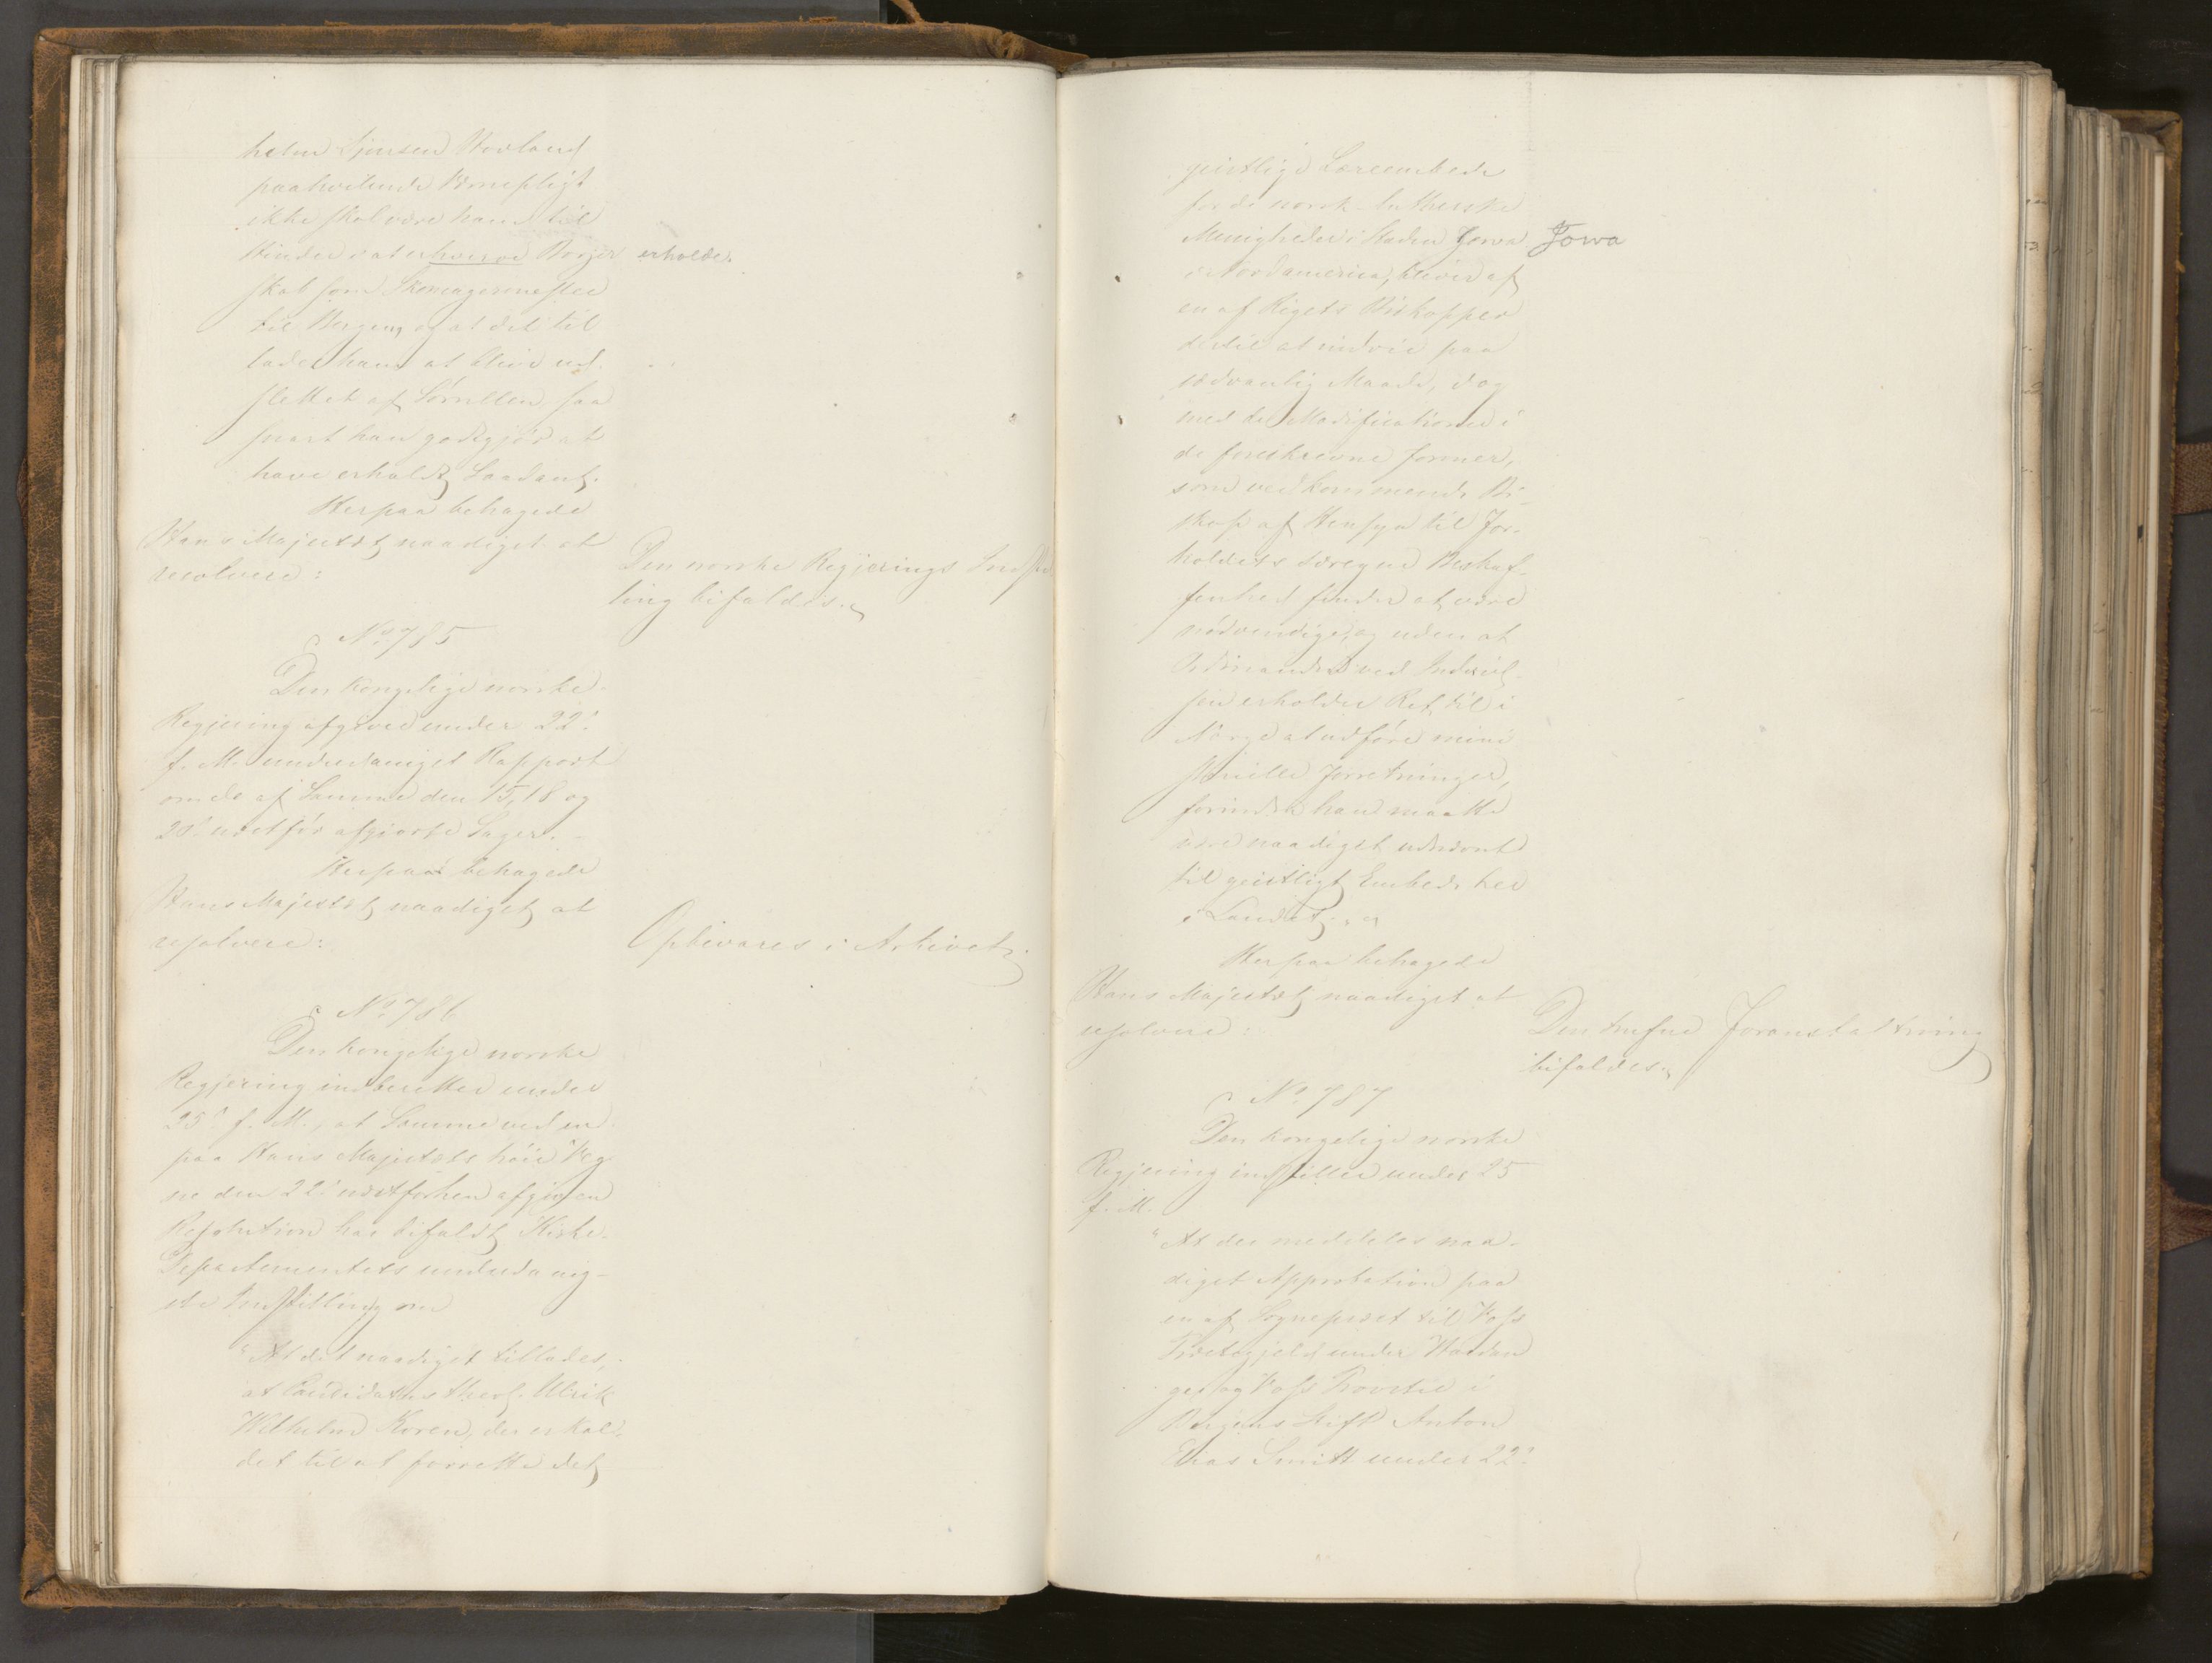 helm Sjursen Hovland
paahvilende Værnepligt
ikke skal være ham til
Hinder i at erhverve Borger erholde.
skab som Skomagermester
til Bergen, og at det til
lades ham at blive ud
slettet af Rullen, saa
snart han godtgjør at
have erholdt Saadant.
Herpaa behagede
Hans Majestæt naadigst at
resolvere:
Den norske Regjerings Indstil
ling bifaldes.
No 785
Den kongelige norske
Regjering afgiver under 22.
f. M. underdanigst Rapport
om de af Samme den 15, 18 og
20. næstfør afgjorte Sager.
Herpaa behagede
Hans Majestæt naadigst at
resolvere:
Opbevares i Arkivet.
No 786
Den kongelige norske
Regjering indberetter under
25. f. M., at Samme ved en
paa Hans Majestæts høie Veg
ne den 22. næstforhen afgiven
Resolution har bifaldt Kirke-
Departementets underdanig-
ste Indstilling om
"At det naadigst tillades,
at Candidatus theol. Ulrik
Wilhelm Koren, der er kal-
det til at forrette det
geistlige Læreembede
for de norsk-lutherske
Menigheder i Staden Jowa Jowa
i Nordamerica, bliver af
en af Rigets Biskopper
dertil at indvie paa
sædvanlig Maade, dog
med de Modificationer i
de foreskrevne Former,
som vedkommende Bi-
skop af Hensyn til For-
holdets særegne Beskaf-
fenhed finder at være
nødvendige, og uden at
Ordinanden ved Indviel-
sen erholder Ret til i
Norge at udføre mini
sterielle Forretninger,
forinden han maatte
være naadigst udnævnt
til geistligt Embede her
i Landet."
Herpaa behagede
Hans Majestæt naadigst at
resolvere:
Den trufne Foranstaltning
bifaldes.
No 787
Den kongelige norske
Regjering indstiller under 25
f. M.
"At der meddeles naa-
digst Approbation paa
en af Sognepræst til Voss
Præstegjeld under Hardan
ger og Voss Provstie i
Bergens Stift Anton
Elias Smitt under 22.